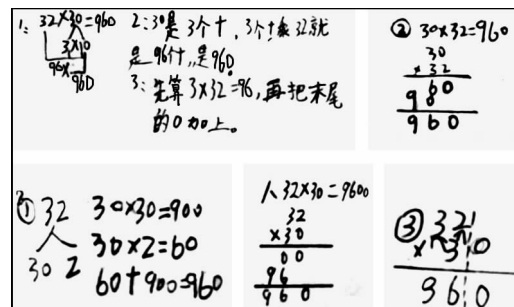 1: 32×30=960
3×10
96×
960
2: 30是3个十，3个十乘32就
是96个十,是960
3: 先算3×32=96,再把末尾
的0加上。
② 30×32=960
30
×32
60
9
960
① 32 30×30=900
30×2=60
30 2
60+900=960
32×30=9600
32
×30
00
96
960
③ 32
×30
960